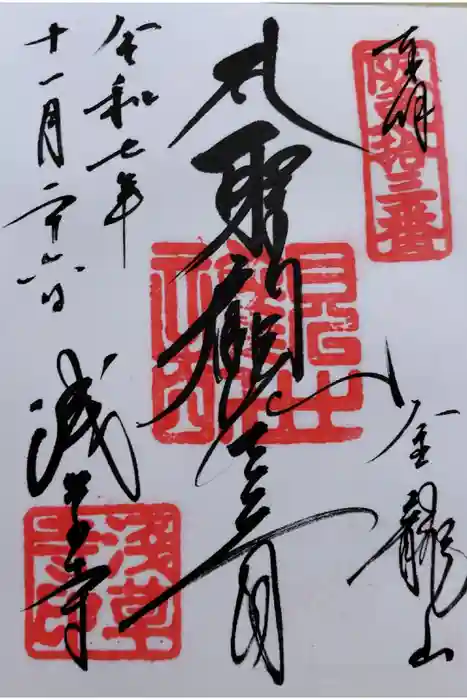 奉拝
坂東拾三番
金龍山
聖観世音
令和七年
十一月二十六日
浅草寺
淺草寺印